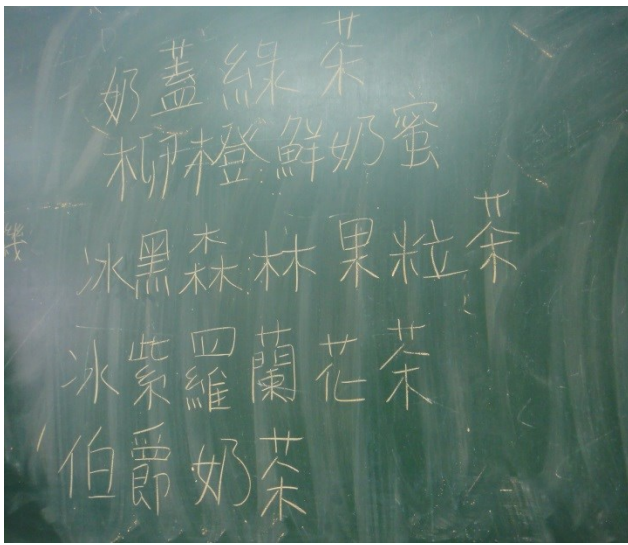 奶蓋綠茶
柳橙鮮奶蜜
冰黑森林果粒茶
冰紫羅蘭花茶
伯爵奶茶